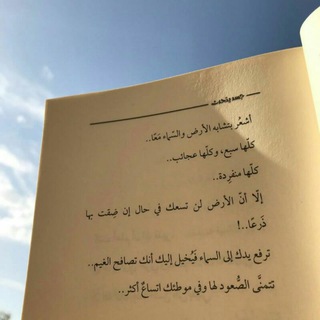 أشعُر بتشابه الأرض والسّماء مَعًا..
كلّها سبع، وكلّها عجائب..
كلّها منفردة..
إلّا أنّ الأرض لن تسعك في حال إن ضِقت بها
ذَرعًا..!
ترفع يدك إلى السماء فَيُخيل إليك أنك تصافح الغيم..
تتمنَّى الصُّعود لها وفي موطئك اتساعٌ أكثر..